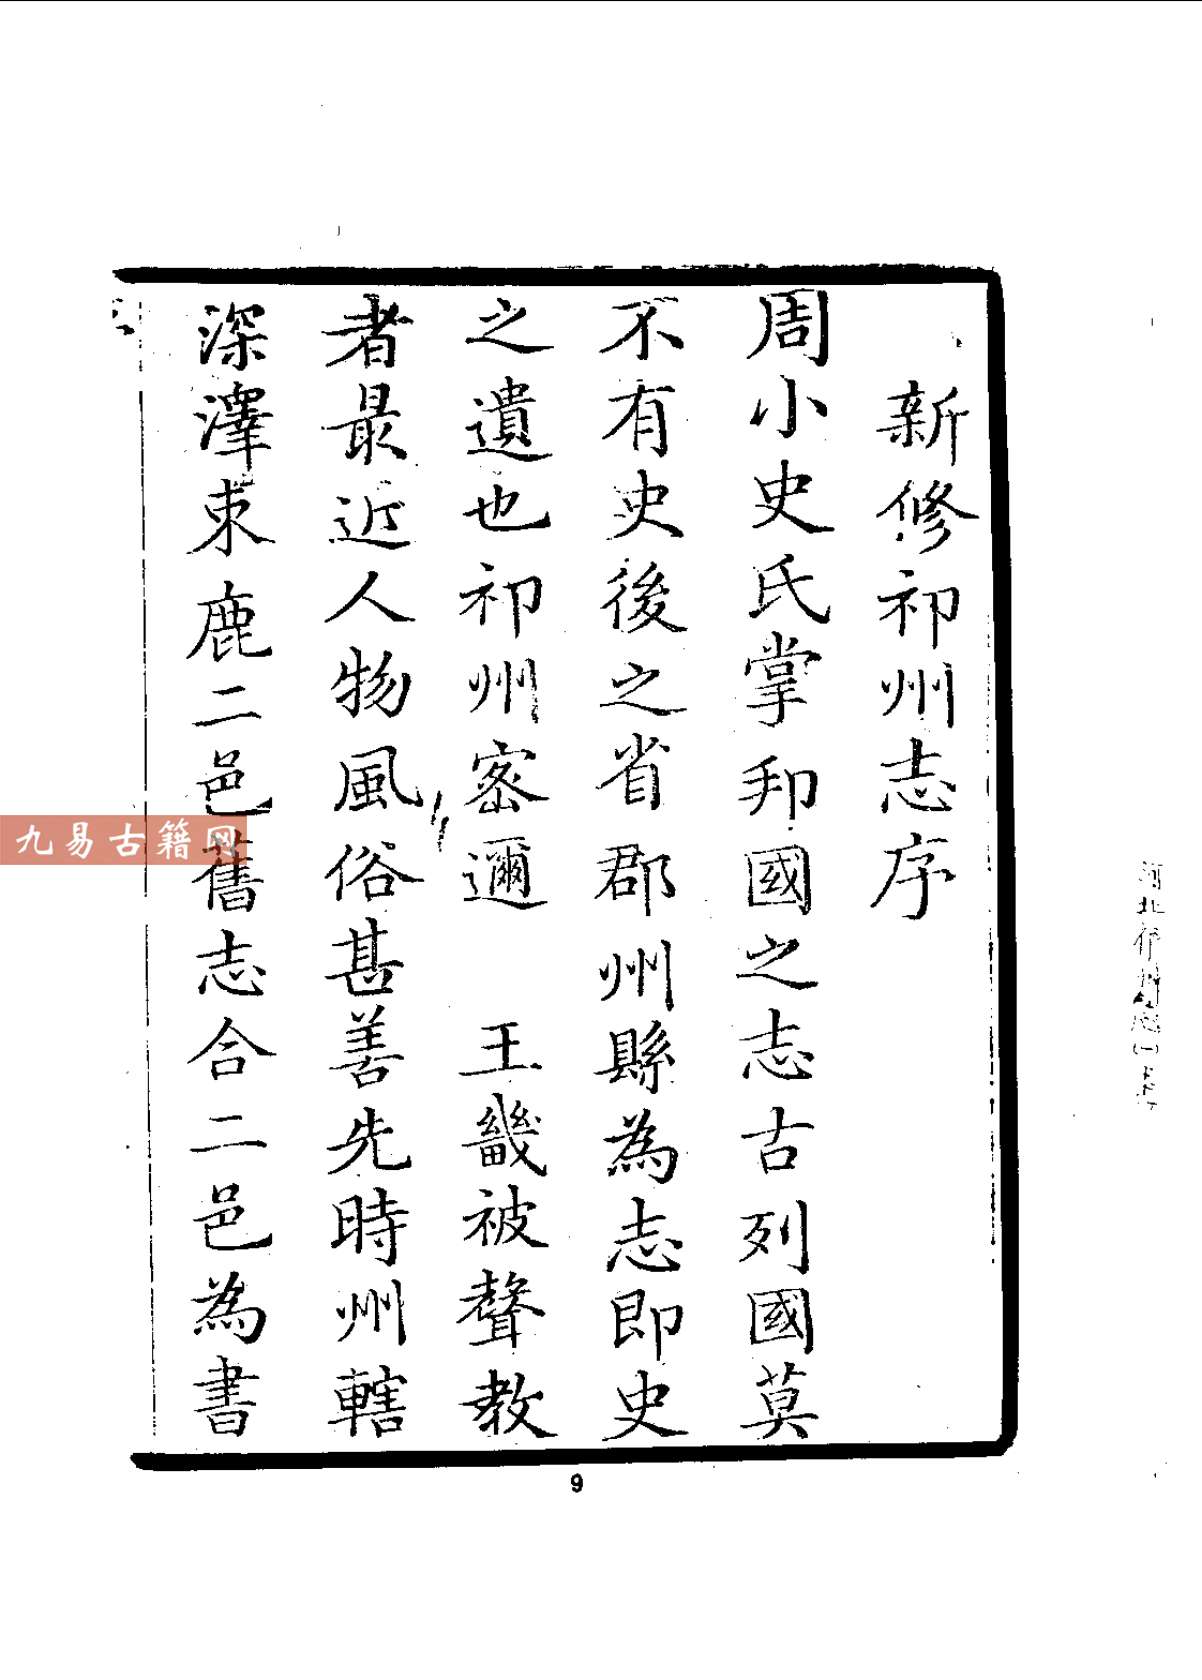 新修祁州志序
周小史氏掌邦國之志古列國莫
不有史後之省郡州縣為志即史
之遺也祁州密邇　王畿被聲教
者最近人物風俗甚善先時州轄
深澤束鹿二邑舊志合二邑為書
九易古籍网
9